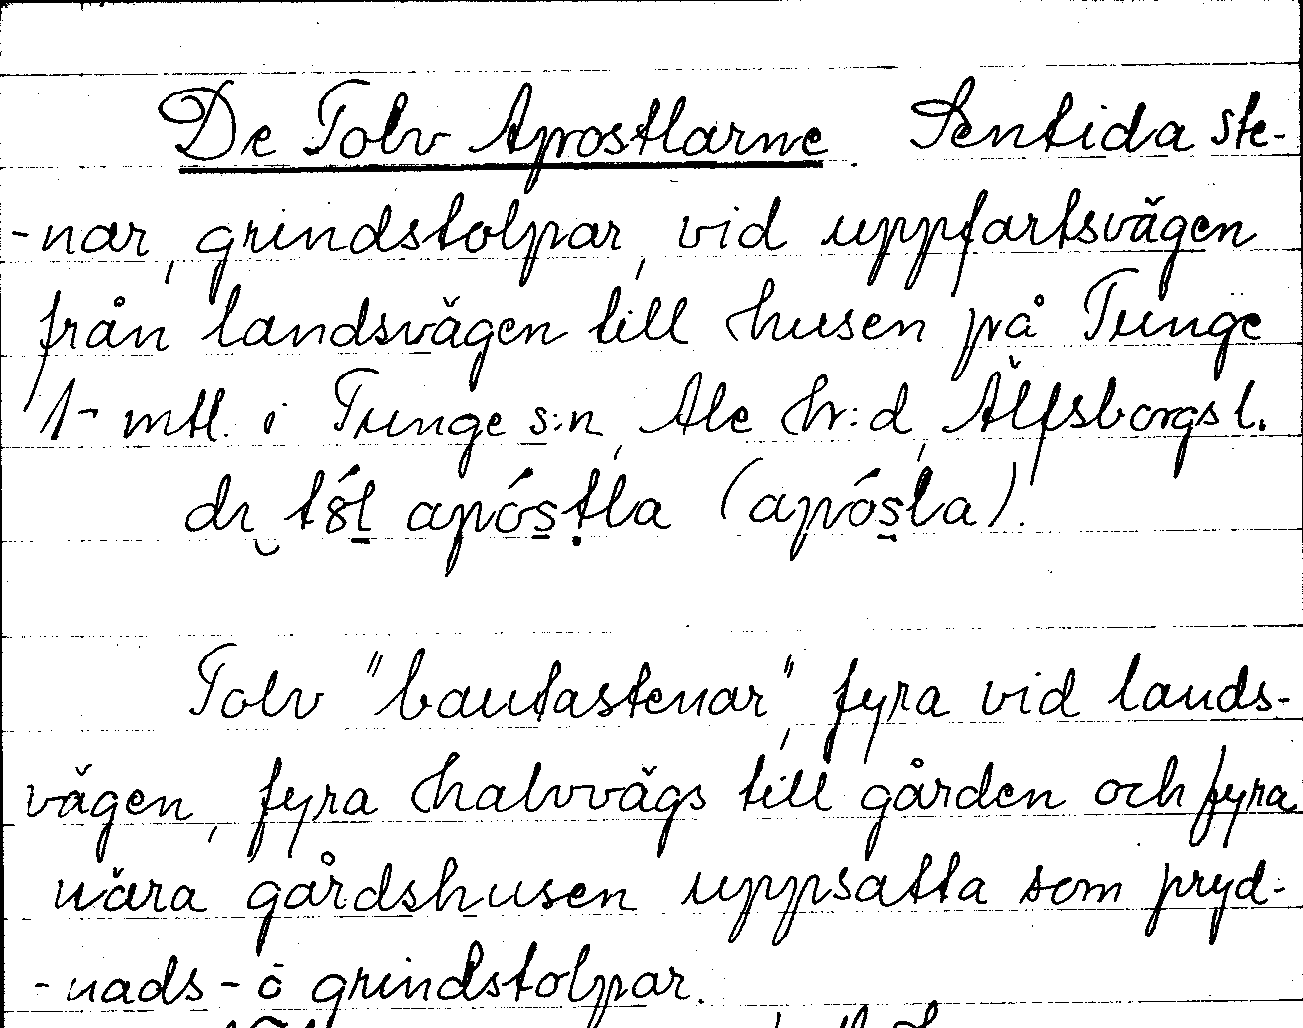 De Tolv Apostlarne. Sentida ste-
-nar, grindstolpar, vid uppfartsvägen
från landsvägen till husen på Tunge
1 mtl. i Tunge s:n, Ale hr:d, Älfsborgs l.
apóstla (apósla).
Tolv "bautastenar", fyra vid lands-
vägen, fyra halvvägs till gården och fyra
nära gårdshusen uppsatta som pryd-
-nads- o grindstolpar.